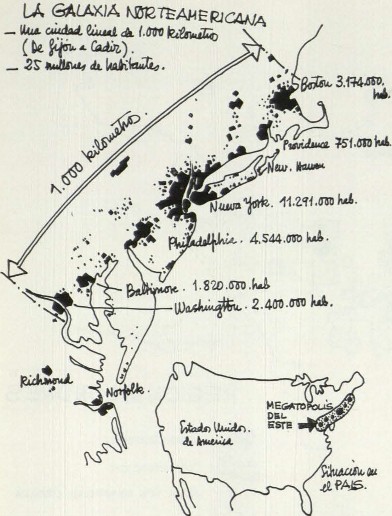 LA GALAXIA NORTEAMERICANA
— Una ciudad lineal de 1.000 kilometros
(De Gijón a Cadiz).
— 25 millones de habitantes.
1.000 kilometros.
Boston 3.174.000
hab.
Providence 751.000 hab.
New. Hawen
Nueva York. 11.291.000 hab.
Philadelphie. 4.544.000 hab.
Balthmore. 1.820.000 hab
Washingtton. 2.400.000 hab.
Richmond
Norfolk.
MEGATOPOLIS
DEL
ESTE
Estados Unidos.
de America
Situación en
el PAIS.